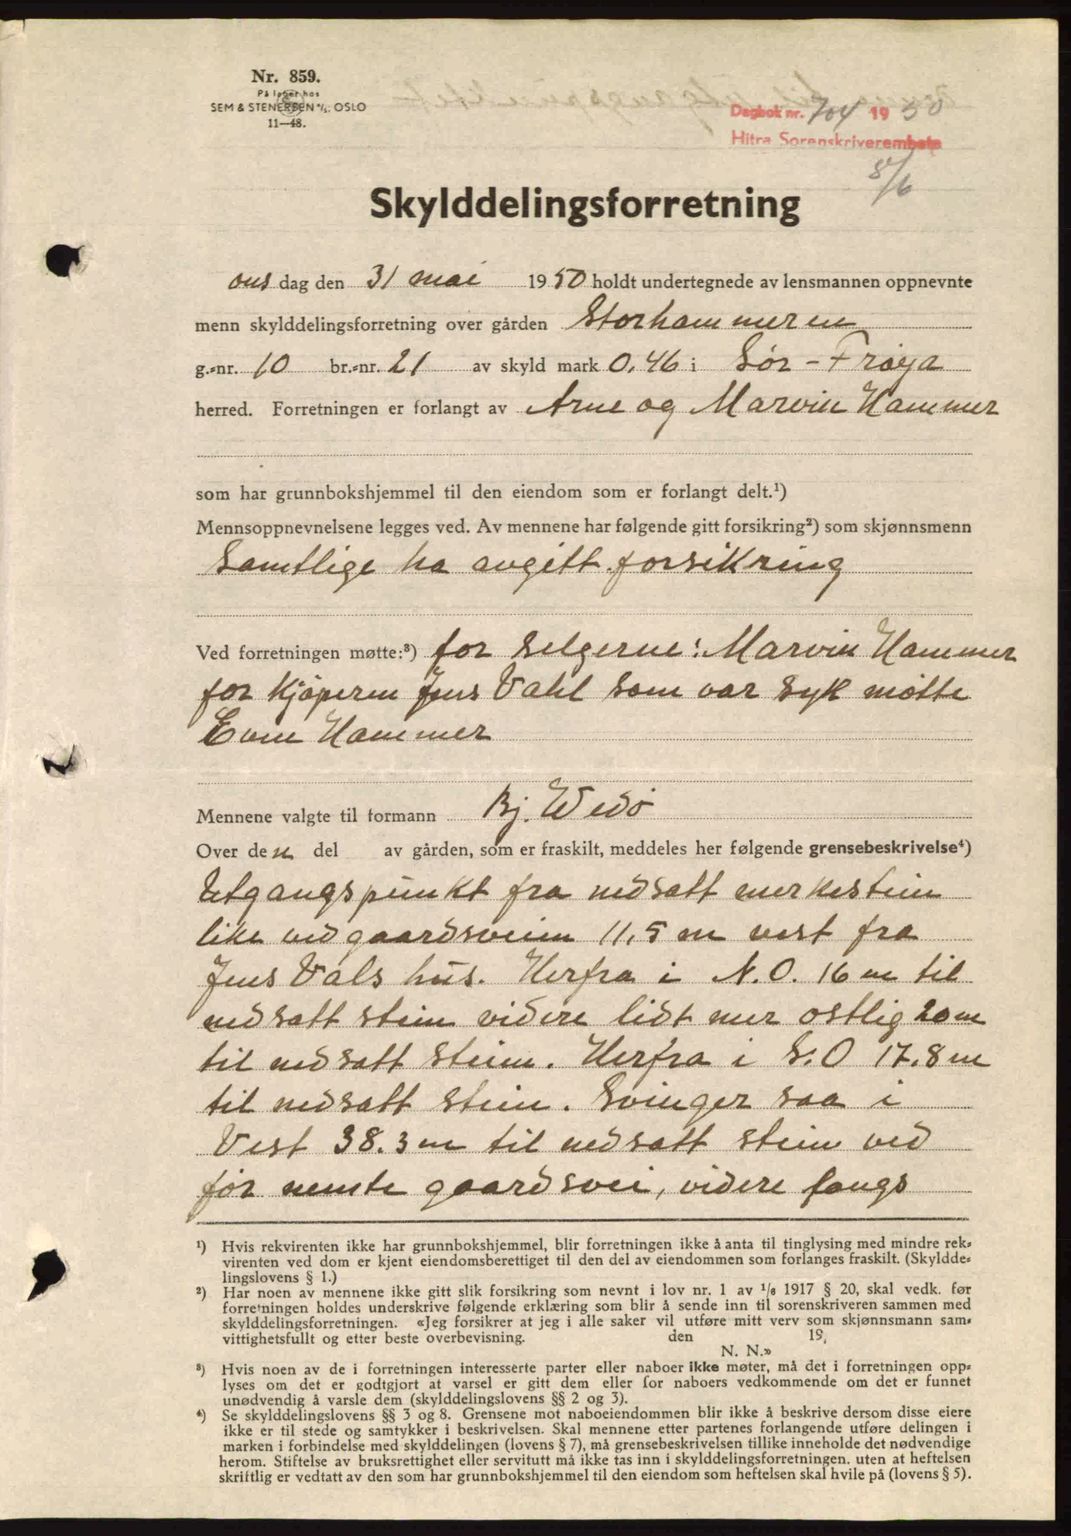 Nr. 859.
På lager hos
SEM & STENERSEN A/S, OSLO
11—48.
Dagbok nr. 704 1950
Hitra Sorenskriverembete
8/6
Skylddelingsforretning
ons dag den 31 mai 1950 holdt undertegnede av lensmannen oppnevnte
menn skylddelingsforretning over gården Storhammeren
g.-nr. 10 br.-nr. 21 av skyld mark 0,46 i Sør-Frøya
herred. Forretningen er forlangt av Arne og Marvin Hammer
som har grunnbokshjemmel til den eiendom som er forlangt delt.¹)
Mennsoppnevnelsene legges ved. Av mennene har følgende gitt forsikring²) som skjønnsmenn
Samtlige ha avgitt forsikring
Ved forretningen møtte:³) for selgerne: Marvin Hammer
for kjøperen Jens Vahl som var syk møtte
Even Hammer
Mennene valgte til formann Bj. Wedø
Over den del av gården, som er fraskilt, meddeles her følgende grensebeskrivelse⁴)
Utgangspunkt fra nedsatt merkestein
like ved gaardsveien 11,5 m vest fra
Jens Vals hus. Herfra i N.O. 16 m til
nedsatt stein videre lidt mer ostlig 20 m
til nedsatt stein. Herfra i S.O 17.8 m
til nedsatt stein. Svinger saa i
Vest 38.3 m til nedsatt stein ved
før nemte gaardsvei, videre langs
¹) Hvis rekvirenten ikke har grunnbokshjemmel, blir forretningen ikke å anta til tinglysing med mindre rek-
virenten ved dom er kjent eiendomsberettiget til den del av eiendommen som forlanges fraskilt. (Skyldde-
lingslovens § 1.)
²) Har noen av mennene ikke gitt slik forsikring som nevnt i lov nr. 1 av 1/6 1917 § 20, skal vedk. før
forretningen holdes underskrive følgende erklæring som blir å sende inn til sorenskriveren sammen med
skylddelingsforretningen. «Jeg forsikrer at jeg i alle saker vil utføre mitt verv som skjønnsmann sam-
vittighetsfullt og etter beste overbevisning. den 19,
N. N.»
³) Hvis noen av de i forretningen interesserte parter eller naboer ikke møter, må det i forretningen opp-
lyses om det er godtgjort at varsel er gitt dem eller for naboers vedkommende om det er funnet
unødvendig å varsle dem (skylddelingslovens §§ 2 og 3).
⁴) Se skylddelingslovens §§ 3 og 8. Grensene mot naboeiendommen blir ikke å beskrive dersom disse eiere
ikke er til stede og samtykker i beskrivelsen. Skal mennene etter partenes forlangende utføre delingen i
marken i forbindelse med skylddelingen (lovens § 7), må grensebeskrivelsen tillike inneholde det nødvendige
herom. Stiftelse av bruksrettighet eller servitutt må ikke tas inn i skylddelingsforretningen. uten at heftelsen
skriftlig er vedtatt av den som har grunnbokshjemmel til den eiendom som heftelsen skal hvile på (lovens § 5).